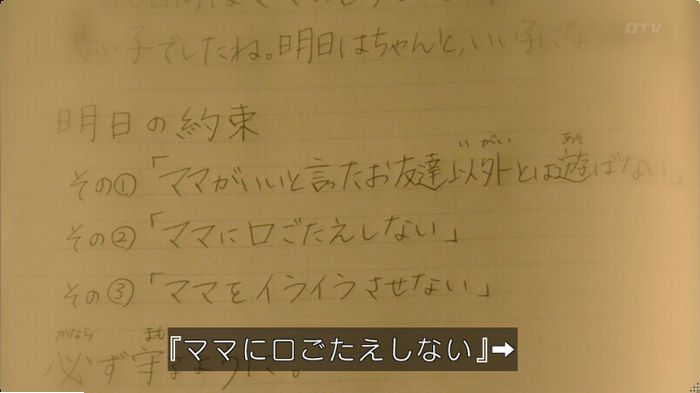 悪い子でしたね。明日はちゃんと、いい子にな
明日の約束
いがい あそ
その①「ママがいいと言ったお友達以外とは遊ばない」
その②「ママに口ごたえしない」
その③「ママをイライラさせない」
かなら まも
必ず守るように。
『ママに口ごたえしない』➡